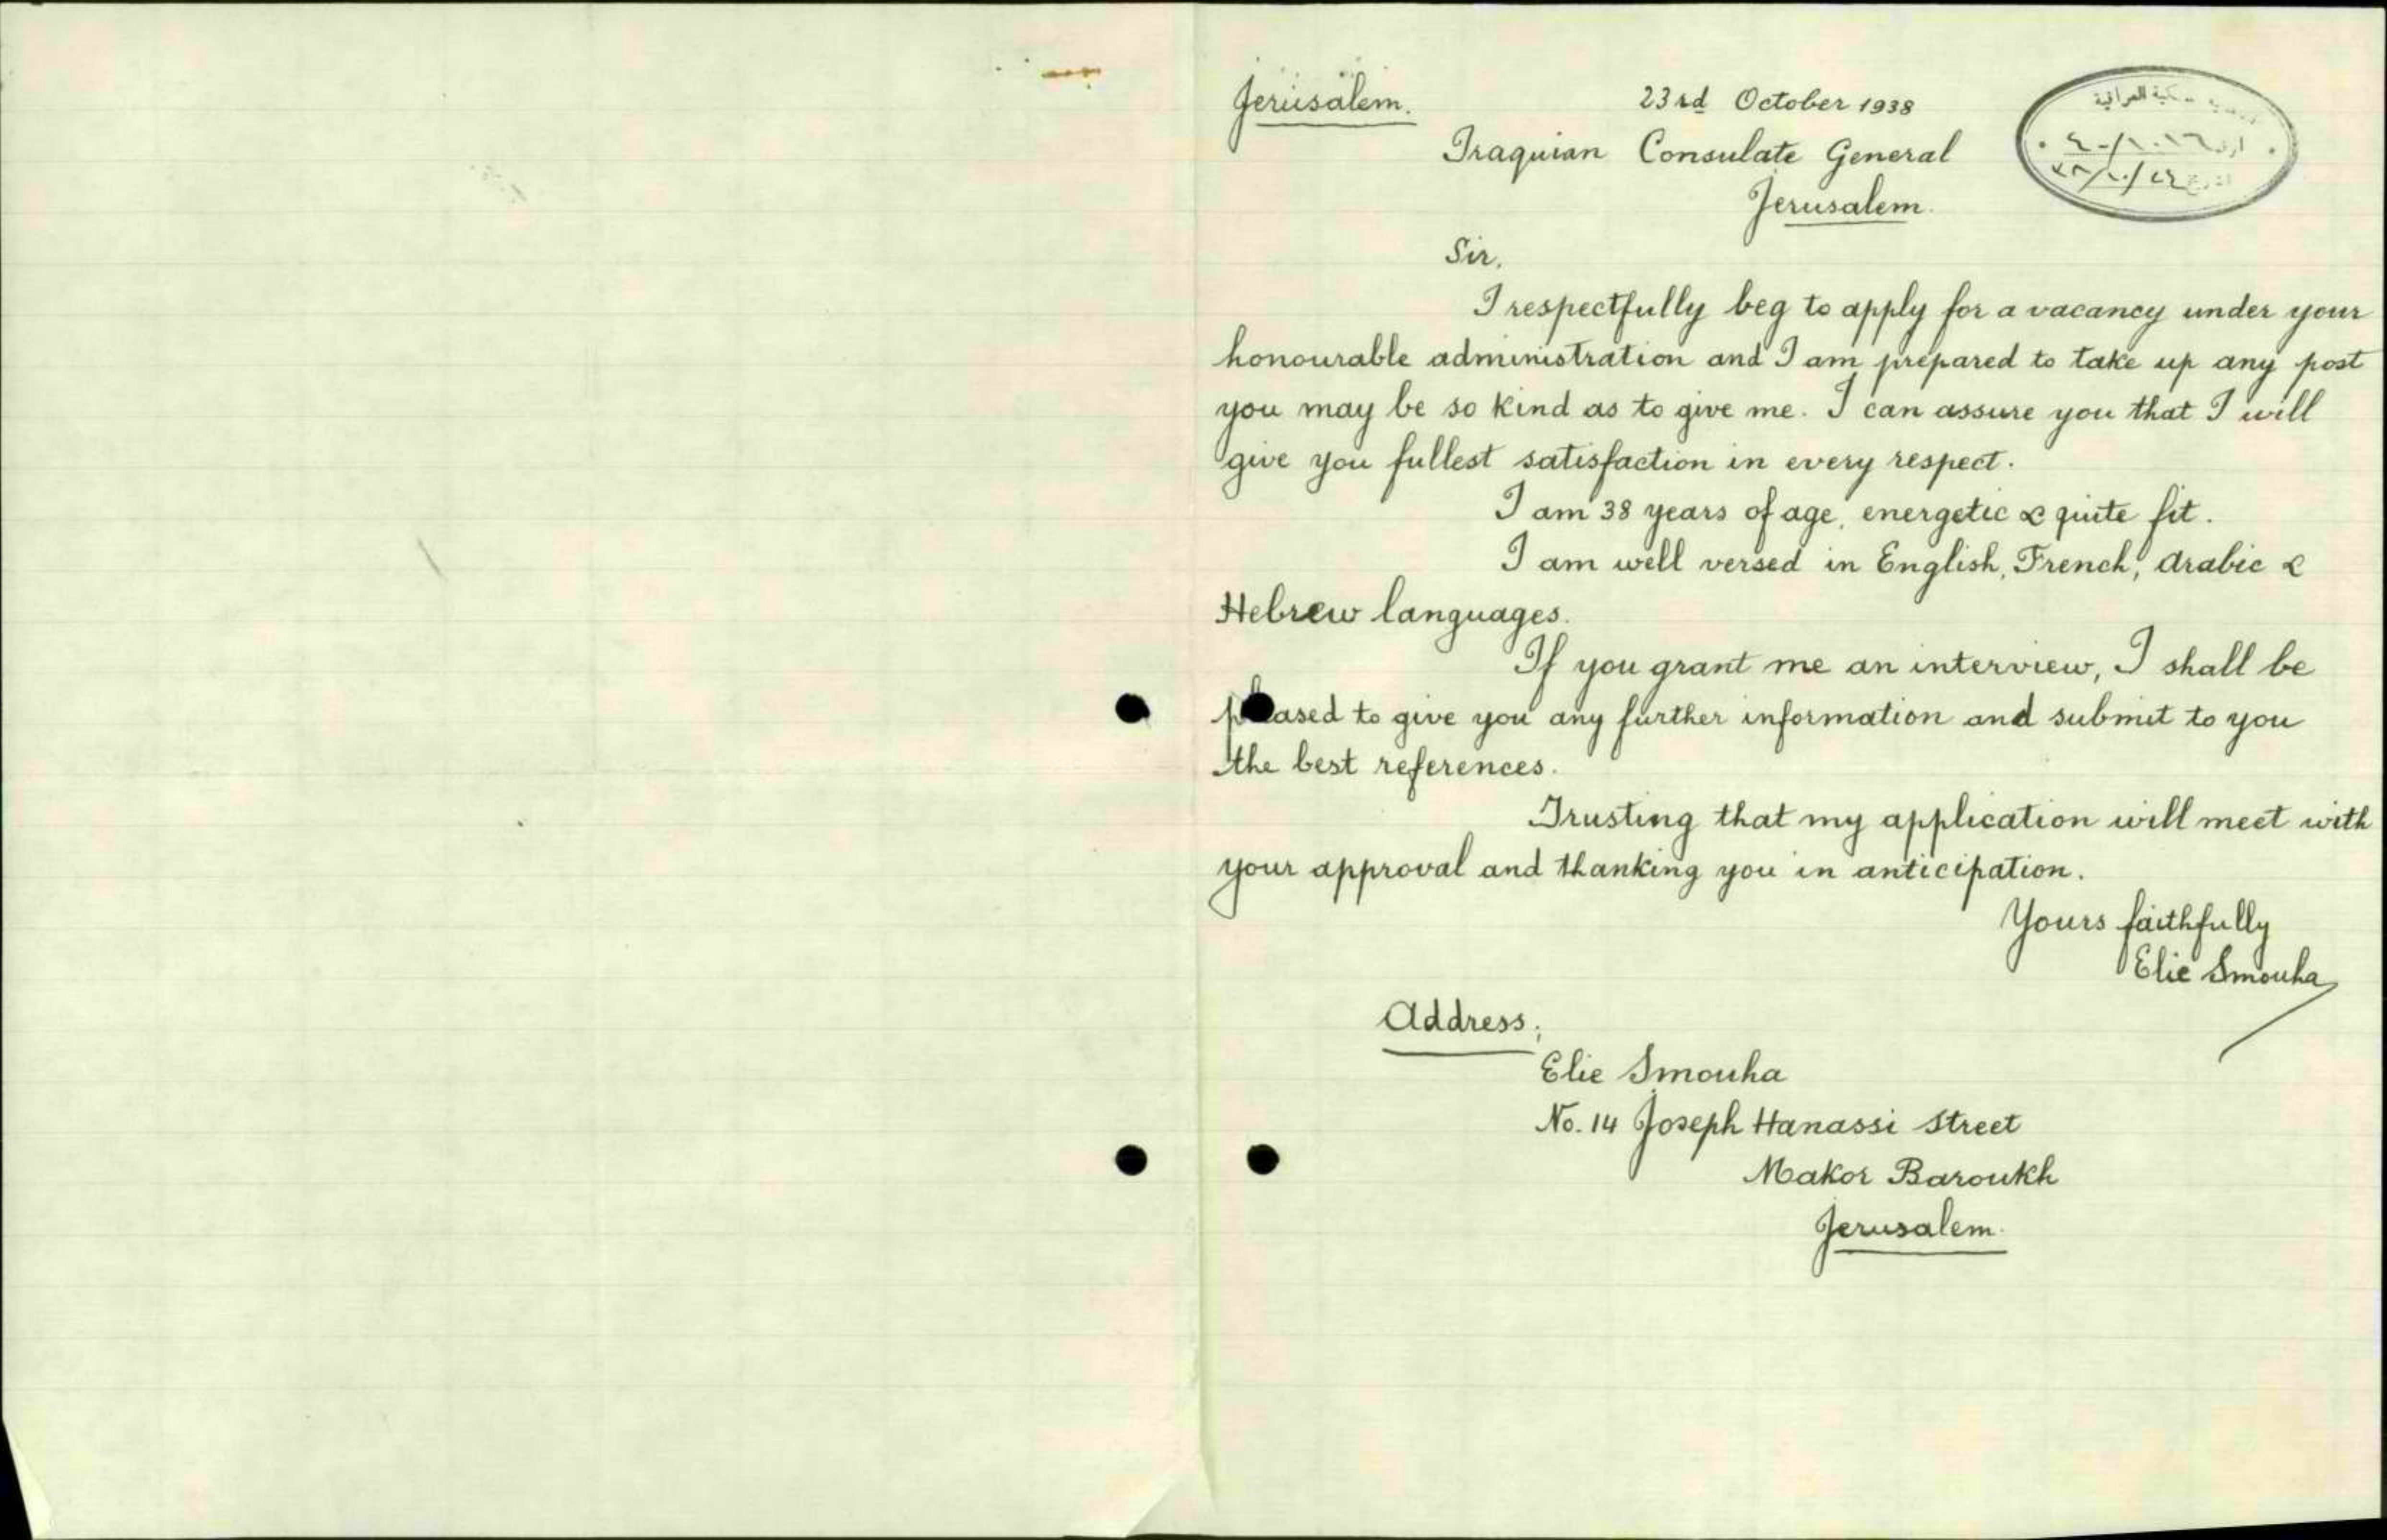 Jerusalem. 23rd October 1938
Iraquian Consulate General
Jerusalem.
العراقية
٤٠/١٠١٦
٣٨/١٠/٢٤
Sir,
I respectfully beg to apply for a vacancy under your
honourable administration and I am prepared to take up any post
you may be so kind as to give me. I can assure you that I will
give you fullest satisfaction in every respect.
I am 38 years of age, energetic & quite fit.
I am well versed in English, French, Arabic &
Hebrew languages.
If you grant me an interview, I shall be
pleased to give you any further information and submit to you
the best references.
Trusting that my application will meet with
your approval and thanking you in anticipation.
Yours faithfully
Elie Smouha
Address;
Elie Smouha
No. 14 Joseph Hanassi Street
Makor Baroukh
Jerusalem.